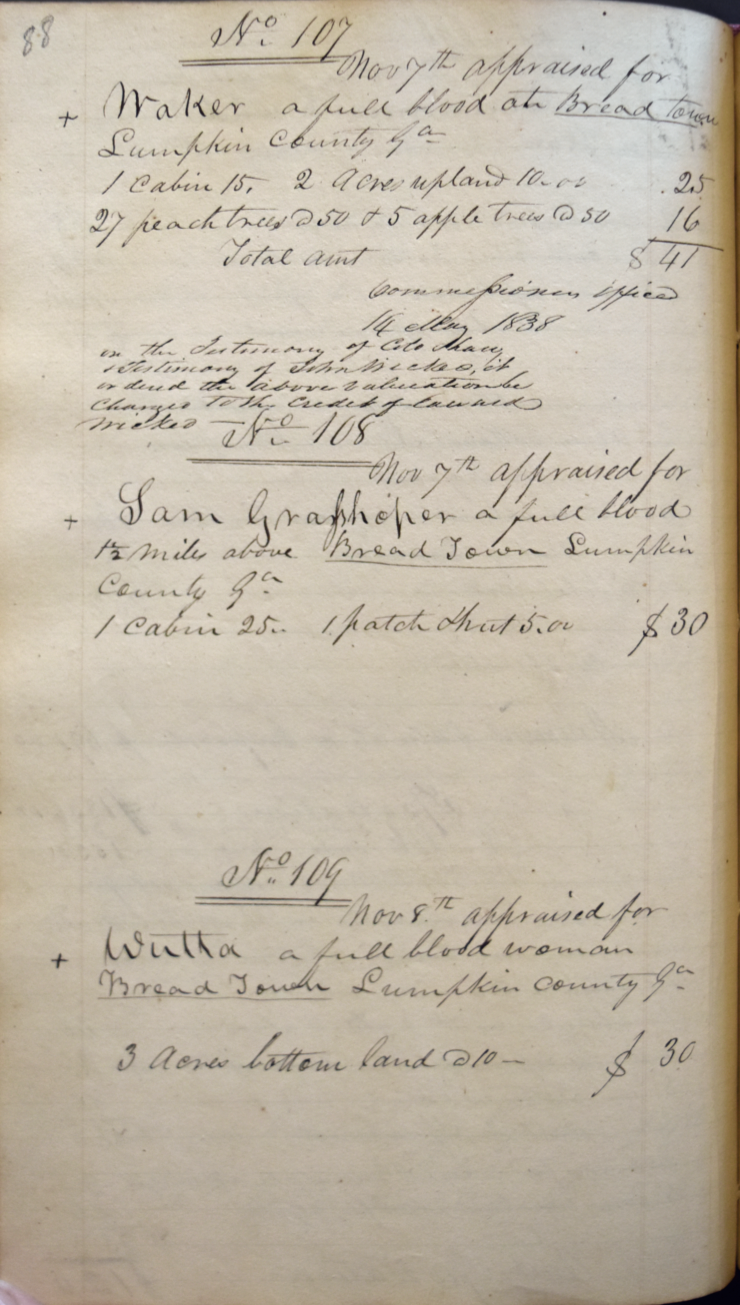 88
No. 107
Nov 7th appraised for
+ Waker a full blood at Bread town
Lumpkin County Ga
1 Cabin 15. 2 Acres upland 10.00 .25
27 peach trees @ 50 & 5 apple trees @ 50 16
Total amt $ 41
Commissioners Office
14 May 1838
on the Testimony of Cols
& Testimony of John Wicked, it
ordered the above valuation be
Charged To the Credit of
Wicked
No. 108
Nov 7th appraised for
+ Sam Grasshoper a full blood
1½ miles above Bread Town Lumpkin
County Ga
1 Cabin 25.. 1 patch & hut 5.00 $ 30
No. 109
Nov 8th appraised for
+ Wutta a full blood woman
Bread Town Lumpkin County Ga
3 Acres bottom land @ 10 — $ 30